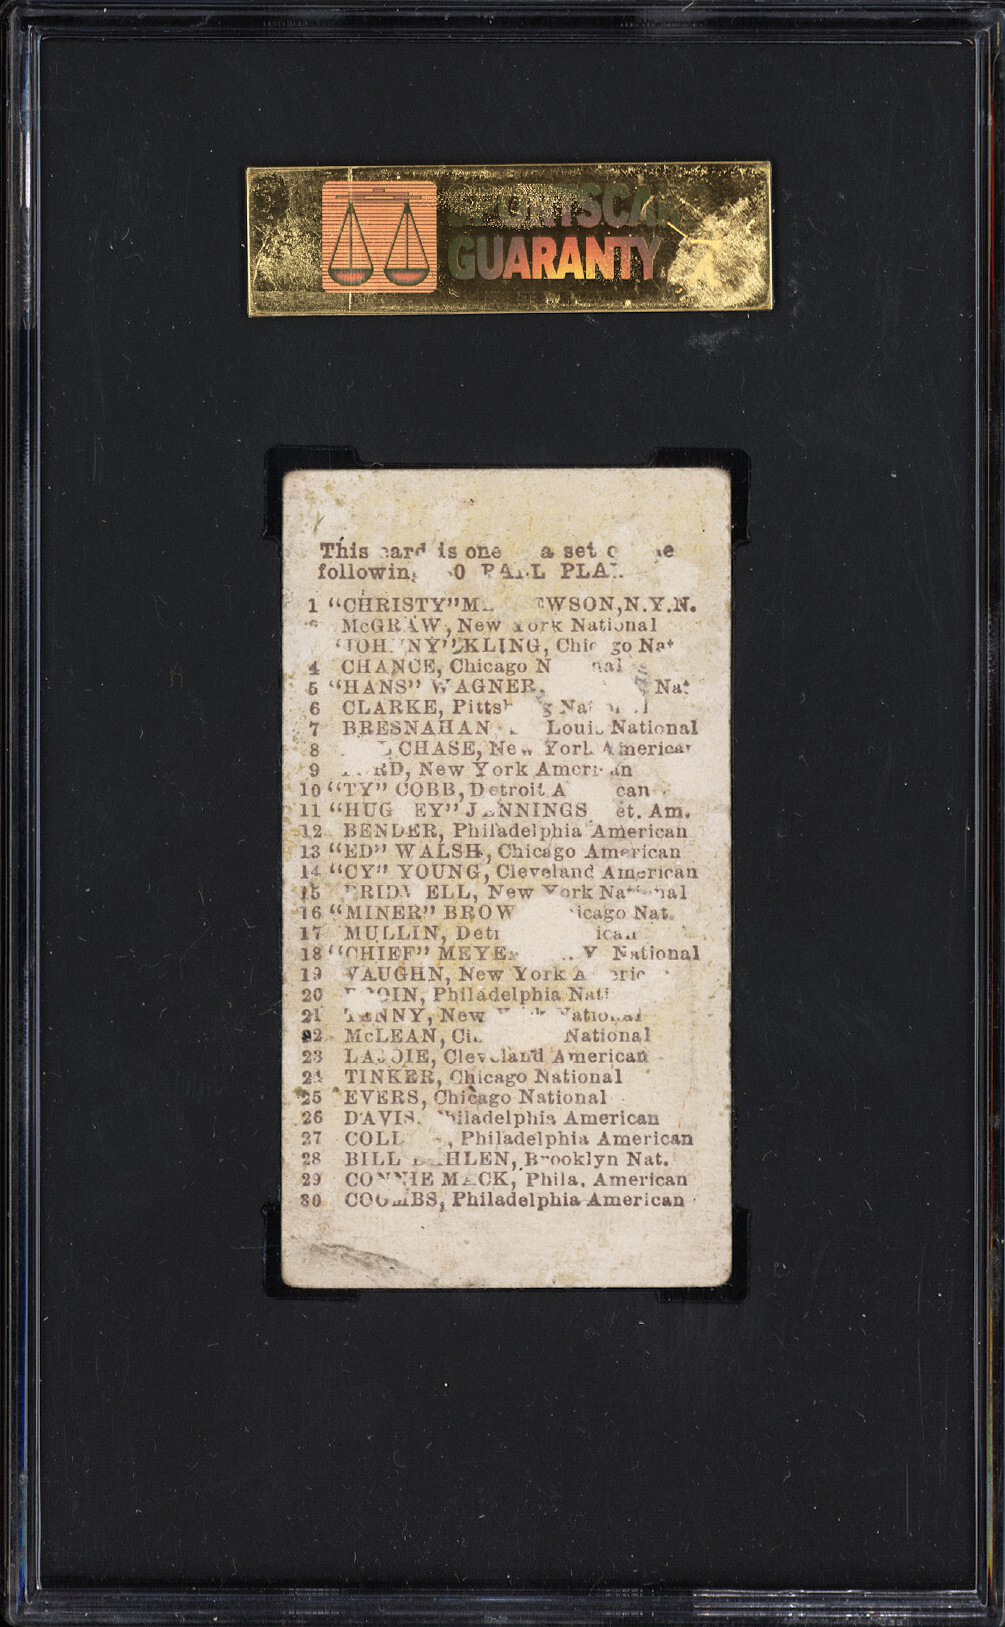 SPORTSCARD
GUARANTY
This card is one a set
following PLA
1 "CHRISTY" WSON, N.Y.N.
McGRAW, New York National
"JOHNNY" KLING, Chicago Nat
4 CHANCE, Chicago
5 "HANS" WAGNER, Nat
6 CLARKE,
7 BRESNAHAN Louis National
8 CHASE, New York American
9 New York American
10 "TY" COBB, Detroit A can
11 "HUG EY" JENNINGS et. Am.
12 BENDER, Philadelphia American
13 "ED" WALSH, Chicago American
14 "CY" YOUNG, Cleveland American
15 New York National
16 "MINER" BROW icago Nat.
17 MULLIN, Det
18 "CHIEF" MEYE National
19 VAUGHN, New York
20 Philadelphia
21 New
22 McLEAN, National
23 LAJOIE, Cleveland American
24 TINKER, Chicago National
25 EVERS, Chicago National
26 DAVIS, Philadelphia American
27 COLL , Philadelphia American
28 BILL HLEN, Brooklyn Nat.
29 CONNIE MACK, Phila. American
30 COOMBS, Philadelphia American